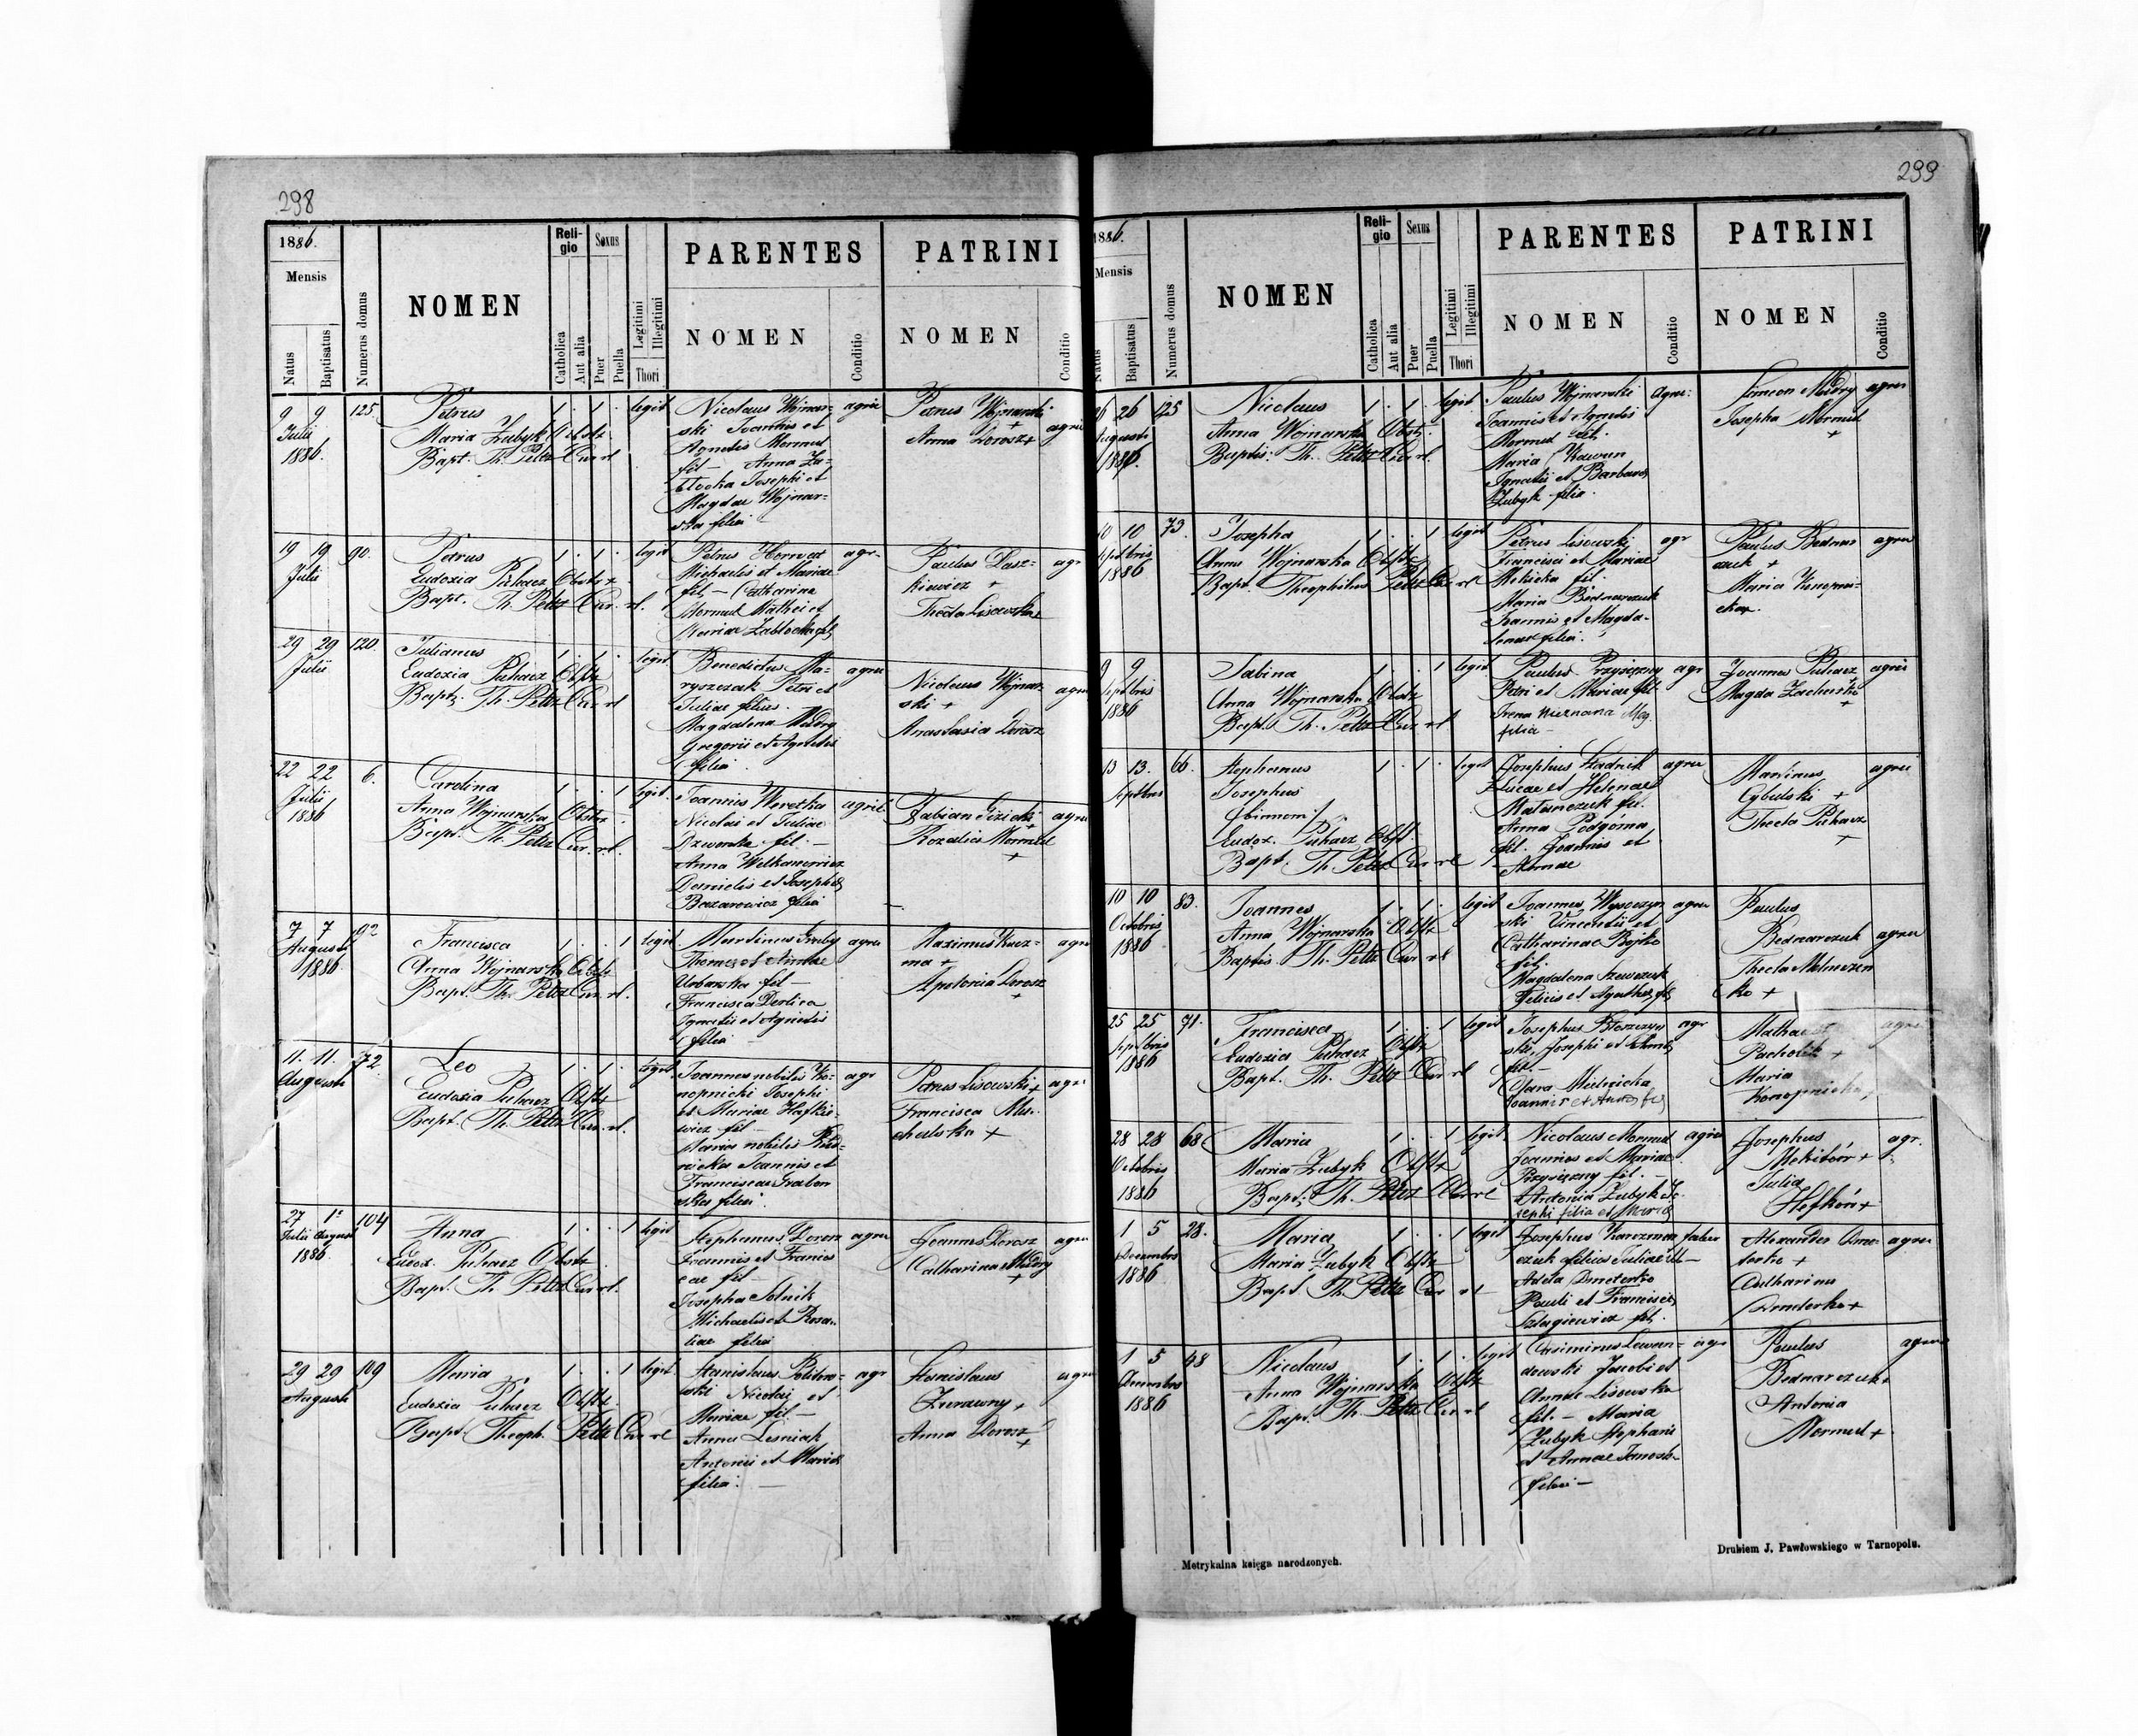 298
1886.
Mensis
Natus
Baptisatus
Numerus domus
NOMEN
Reli-
gio
Catholica
Aut alia
Sexus
Puer
Puella
Legitimi
Illegitimi
Thori
PARENTES
NOMEN
Conditio
PATRINI
NOMEN
Conditio
9 9 125.
Julii
1886.
Petrus
Maria Zubyk Obstx
Bapt. Th. Peltz Cur. rl.
1 . 1 . legit
Nicolaus Wojnar-
ski Joannis et
Agnetis Mormul
fil — Anna Za-
blocka Josephi et
Magdae Wojnar-
ska filia
agric
Petrus Wojnarski
+
Anna Dorosz+
agric
19 19 90.
Julii
Petrus
Eudoxia Puhacz Obstx +
Bapt. Th. Peltz Cur. rl.
1 . 1 . legit
Petrus Horwat
Michaelis et Mariae
fil — Catharina
Mormul Mathei et
Mariae Zablocka fil
agr.
Paulus Dasz-
kiewicz +
Thecla Lisowska
agr
29 29 120.
Julii
Julianus
Eudoxia Puhacz Obstx
Bapt. Th. Peltz Cur rl
1 . 1 . legit.
Benedictus Ma-
ryszczak Petri et
Juliae filius.
Magdalena Mudry
Gregorii et Agnetis
filia.
agric
Nicolaus Wojnar-
ski +
Anastasia Dorosz
agric
22 22 6.
Julii
1886
Carolina
Anna Wojnarska Obstx
Bapt. Th. Peltz Cur. rl.
1 . . 1 legit.
Joannes Werezka
Nicolai et Juliae
fil. —
Anna Welkanowicz
Danielis et Josephae
Bazarowicz filia
agric.
Fabian Gizicki
+
Rozalia Mormul
+
agric
7 7 92
Augusti
1886.
Francisca
Anna Wojnarska Obstx
Bapt. Th. Peltz Cur. rl.
1 . . 1 legit.
Martinus Gruby
Thomae et Annae
Urbanska fil —
Francisca Derlica
Ignatii et Agnetis
filia —
agric
Maximus Kucz-
ma +
Apolonia Dorosz
+
agric
11. 11. 72.
Augusti
Leo
Eudoxia Puhacz Obstx
Bapt. Th. Peltz Cur. rl.
1 . 1 . legit.
Joannes nobilis Ko-
nopnicki Josephi
et Mariae Hafke-
wicz fil —
Maria nobilis
Joannis et
Franciscae Grabow
ska filia.
agr
Petrus Lisowski +
Francisca
+
agr
27 1a 104
Julii Augusti
1886.
Anna
Eudox. Puhacz Obstx
Bapt. Th Peltz Cur rl.
1 . . 1 legit
Stephanus Dorosz
Joannis et Francis
cae fil —
Josepha Solnik
Michaelis et Rosa-
liae filia
agric
Joannes Dorosz
Catharina Mudry
+
agric
29 29 109
Augusti
Maria
Eudoxia Puhacz Obstx
Bapt. Theoph. Peltz Cur rl
1 . . 1 legit.
Stanislaus
Nicolai et
Mariae fil —
Anna Lesniak
Antonii et Mariae
filia. —
agr
Stanislaus
Zurawny +
Anna Dorosz
+
agric
299
1886.
Mensis
Natus
Baptisatus
Numerus domus
NOMEN
Reli-
gio
Catholica
Aut alia
Sexus
Puer
Puella
Legitimi
Illegitimi
Thori
PARENTES
NOMEN
Conditio
PATRINI
NOMEN
Conditio
26 26 125
Augusti
1886.
Nicolaus
Anna Wojnarska Obstx.
Baptis. Th. Peltz Cur rl.
1 . 1 . legit.
Paulus Wojnarski
Joannis et Agnetis
Mormul fil.
Maria Kawun
Ignatii et Barbarae
Zubyk filia.
Agric.
Simeon Mudry
Josepha Mormul
+
agric
10 10 73.
Septbris
1886
Josepha
Anna Wojnarska Obstx
Bapt. Theophilus Peltz Cur rl
1 . . 1 legit
Petrus Lisowski
Francisci et Mariae
fil.
Maria Bednarczuk
Joannis et Magda-
lenae filia.
agr
Paulus Bednar
czuk +
Maria
agric
9 9
Septbris
1886
Sabina
Anna Wojnarska Obstx
Bapt. Th. Peltz Cur rl.
1 . . 1 legit.
Paulus Przysiezny
Petri et Mariae fil.
Irena Mag.
filia —
agr
Joannes Puhacz
Magda
+
agric
13 13. 66.
Septbris
Stephanus
Josephus
(binomi)
Eudox. Puhacz Obst.
Bapt. Th. Peltz Cur rl
1 . 1 . legit
Josephus
Lucae et Helenae
fil.
Anna Podgórna
fil. Joannis et
Annae
agric
Martinus
Cybulski +
Thecla Puhacz
+
agric
10 10 83.
Octobris
1886
Joannes
Anna Wojnarska Obstx
Baptis. Th. Peltz Cur rl
1 . 1 . legit
Joannes Wysoczyn
ski Vincentii et
Catharinae Bojko
fil.
Magdalena Szewczuk
Felicis et Agathae fil
agric
Paulus
Bednarczuk
Thecla
ko +
agric
25 25 71.
Septbris
1886
Francisca
Eudoxia Puhacz Obstx
Bapt. Th. Peltz Cur rl
1 . . 1 legit
Josephus
ski, Josephi et Annae
fil. —
Clara Mielnicka
Joannis et Annae fil
agr
Pacholik +
Maria
Konopnicka
agric
28 28 68
Octobris
1886
Maria
Maria Zubyk Obstx
Bapt. Th. Peltz Cur rl
1 . . 1 legit
Nicolaus Mormul
Joannes et Mariae
Przysiezny fil.
Antonia Zubyk Jo-
sephi filia et Maria
agric
Josephus
+
Julia
+
agr.
1 5 28.
Decembris
1886
Maria
Maria Zubyk Obstx
Bapt. Th. Peltz Cur rl
1 . . 1 legit
Josephus Karczmar
czuk filius Juliae ill —
Adela Dmeterko
Pauli et Franciscae
fil.
faber
Alexander Dme-
terko +
Catharina
+
agric
1 5 48
Decembris
1886
Nicolaus
Anna Wojnarska Obstx
Bapt. Th. Peltz Cur rl
1 . 1 . legit
Casimirus Lewan-
dowski Jacobi et
Annae Lisowska
fil. — Maria
Zubyk Stephani
et Annae
filia —
agr
Paulus
Bednarczuk +
Antonia
Mormul +
agric
Metrykalna księga narodzonych.
Drukiem J. Pawłowskiego w Tarnopolu.